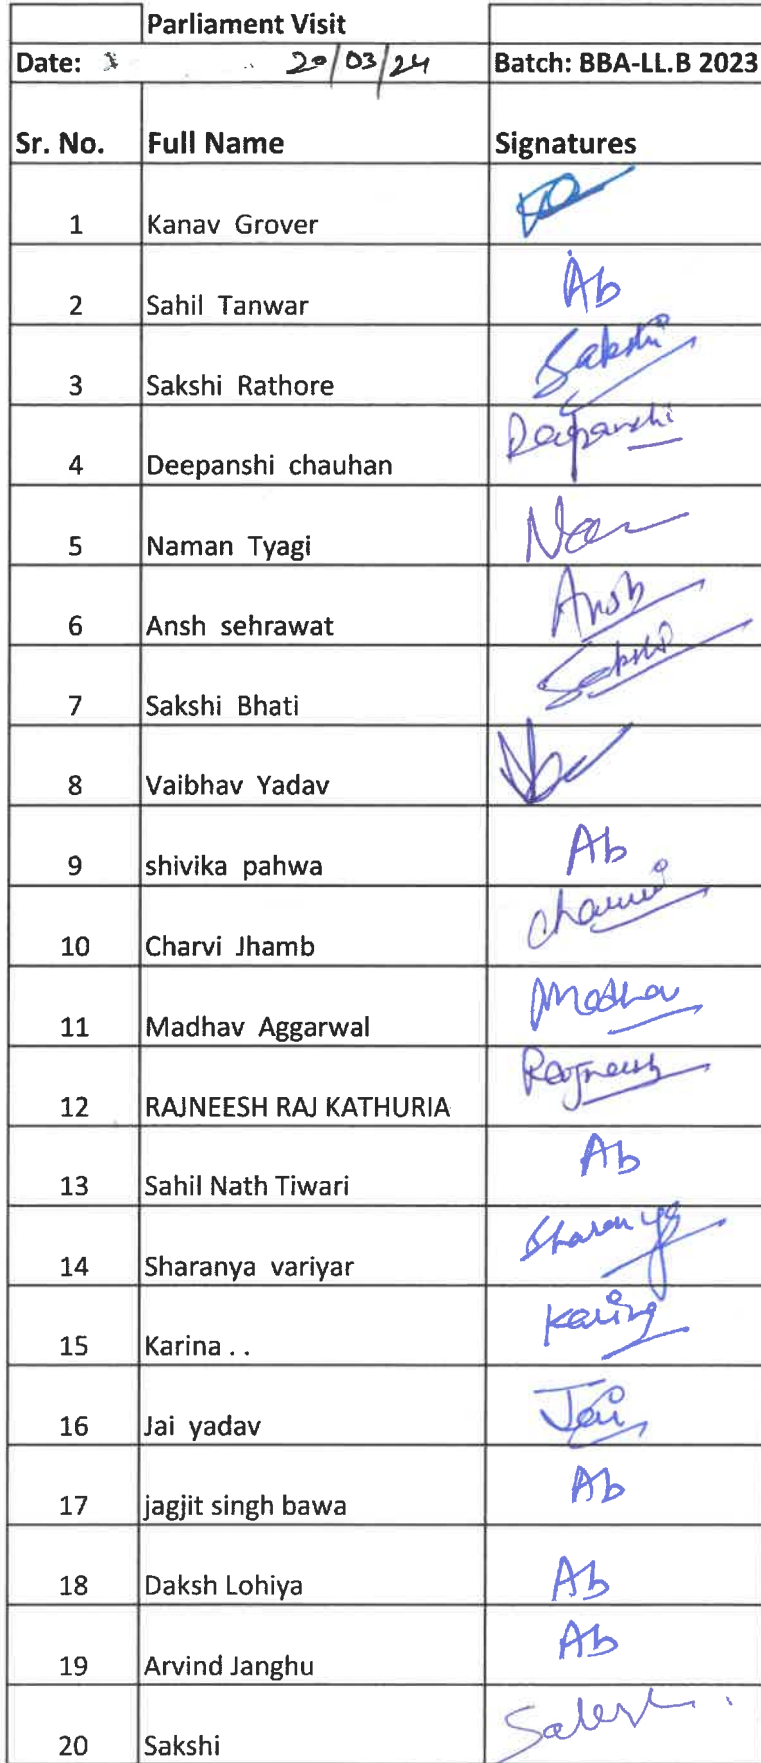 Parliament Visit
Date: 20/03/24 Batch: BBA-LL.B 2023
Sr. No. Full Name Signatures
1 Kanav Grover
2 Sahil Tanwar Ab
3 Sakshi Rathore Sakshi
4 Deepanshi chauhan Deepanshi
5 Naman Tyagi
6 Ansh sehrawat Ansh
7 Sakshi Bhati Sakshi
8 Vaibhav Yadav
9 shivika pahwa Ab
10 Charvi Jhamb Charvi
11 Madhav Aggarwal Madhav
12 RAJNEESH RAJ KATHURIA Rajneesh
13 Sahil Nath Tiwari Ab
14 Sharanya variyar Sharanya
15 Karina . . Karina
16 Jai yadav Jai
17 jagjit singh bawa Ab
18 Daksh Lohiya Ab
19 Arvind Janghu Ab
20 Sakshi